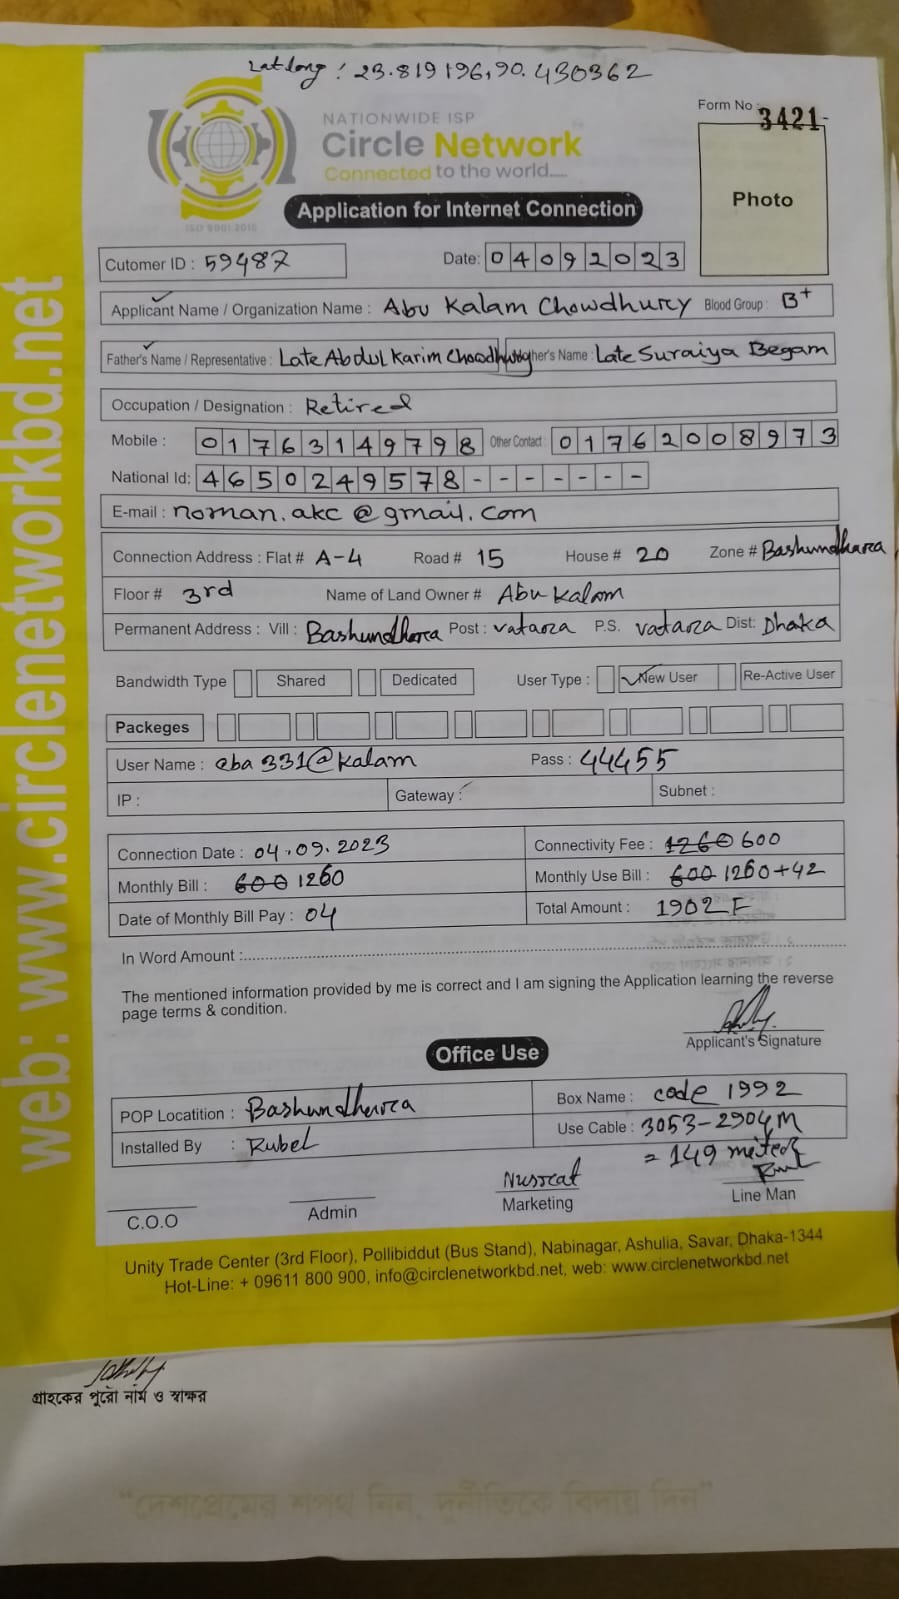 Lat long : 23.819196,90.430362
Form No : 3421-
NATIONWIDE ISP
Circle Network
Connected to the world....
ISO 9001:2015
Photo
Application for Internet Connection
Cutomer ID : 59487
Date: 04092023
Applicant Name / Organization Name : Abu Kalam Chowdhury Blood Group : B+
Father's Name / Representative : Late Abdul Karim Chowdhury Mother's Name : Late Suraiya Begam
Occupation / Designation : Retired
Mobile : 01763149798 Other Contact : 01762008973
National Id: 4650249578-------
E-mail : noman.akc@gmail.com
Connection Address : Flat # A-4 Road # 15 House # 20 Zone # Bashundhara
Floor # 3rd Name of Land Owner # Abu Kalam
Permanent Address : Vill : Bashundhara Post : vatara P.S. vatara Dist: Dhaka
Bandwidth Type Shared Dedicated User Type : New User Re-Active User
Packeges
User Name : cba331@kalam Pass : 44455
IP : Gateway : Subnet :
Connection Date : 04.09.2023 Connectivity Fee : 1260 600
Monthly Bill : 600 1260 Monthly Use Bill : 600 1260+42
Date of Monthly Bill Pay : 04 Total Amount : 1902
In Word Amount :
The mentioned information provided by me is correct and I am signing the Application learning the reverse
page terms & condition.
Applicant's Signature
Office Use
POP Locatition : Bashundhara Box Name : code 1992
Installed By : Rubel Use Cable : 3053-2904M
= 149 meter
Nusrat
C.O.O Admin Marketing Line Man
Unity Trade Center (3rd Floor), Pollibiddut (Bus Stand), Nabinagar, Ashulia, Savar, Dhaka-1344
Hot-Line: + 09611 800 900, info@circlenetworkbd.net, web: www.circlenetworkbd.net
web: www.circlenetworkbd.net
গ্রাহকের পুরো নাম ও স্বাক্ষর
“দেশপ্রেমের শপথ নিন, দুর্নীতিকে বিদায় দিন”